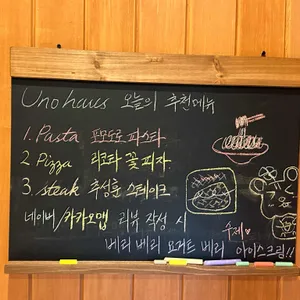 Uno haus 오늘의 추천메뉴
1. Pasta 포모도로 파스타
2. Pizza 리코타 꽃 피자
3. steak 스테이크
네이버/카카오맵 리뷰 작성 시
수제♥
베리 베리 요거트 베리 아이스크림!!